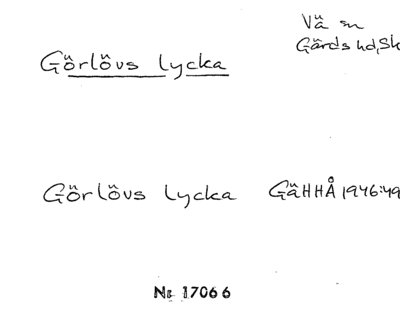 Vä sn
Gärds hd, Sk
Görlövs lycka
Görlövs lycka GäHHÅ 1946:49
Nr 17066